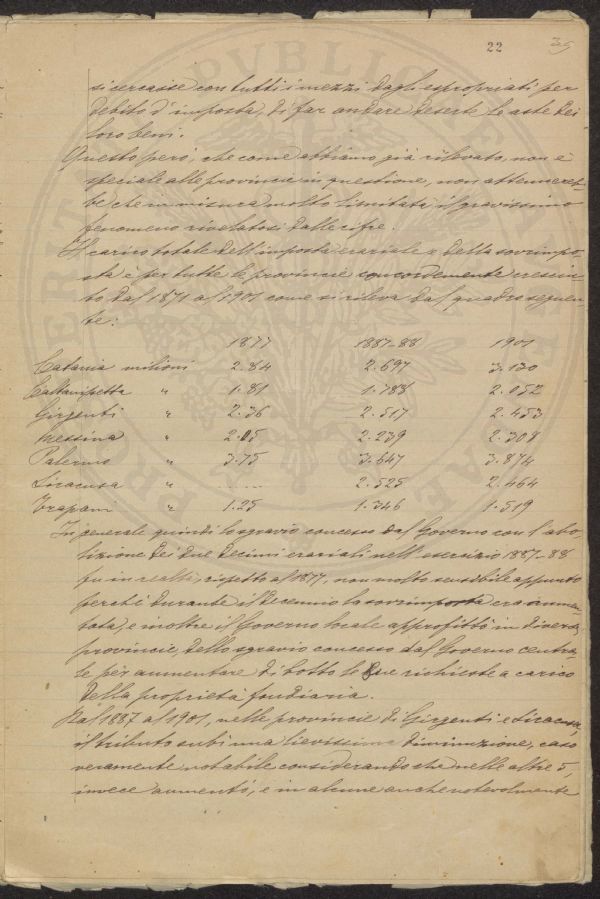 22 35
si cercasse con tutti i mezzi dagli espropriati per
debito d'imposta, di far andare deserte le aste dei
loro beni.
Questo però, che come abbiamo già rilevato, non è
speciale alle provincie in questione, non attenuereb-
be che in misura molto limitata il gravissimo
fenomeno rivelatosi dalle cifre.
Il carico totale dell'imposta erariale e della sovrimpo-
sta è per tutte le provincie concordemente cresciu-
to dal 1871 al 1901 come si rileva dal quadro seguen-
te:
1877 1887-88 1901
Catania milioni 2.84 2.697 3.130
Caltanissetta " 1.81 1.788 2.052
Girgenti " 2.36 2.517 2.453
Messina " 2.05 2.239 2.308
Palermo " 3.75 3.647 3.874
Siracusa " .... 2.525 2.464
Trapani " 1.25 1.346 1.519
In generale quindi lo sgravio concesso dal Governo con l'abo-
lizione dei due decimi erariali nell'esercizio 1887-88
fu in realtà, rispetto al 1877, non molto sensibile appunto
perchè durante il decennio la sovrimposta era aumen-
tata, e inoltre il Governo locale approfittò in diverse
provincie, dello sgravio concesso dal Governo centra-
le per aumentare di botto le sue richieste a carico
della proprietà fondiaria.
Dal 1887 al 1901, nelle provincie di Girgenti e Siracusa,
il tributo subì una lievissima diminuzione, caso
veramente notabile considerando che nelle altre 5,
invece aumentò, e in alcune anche notevolmente